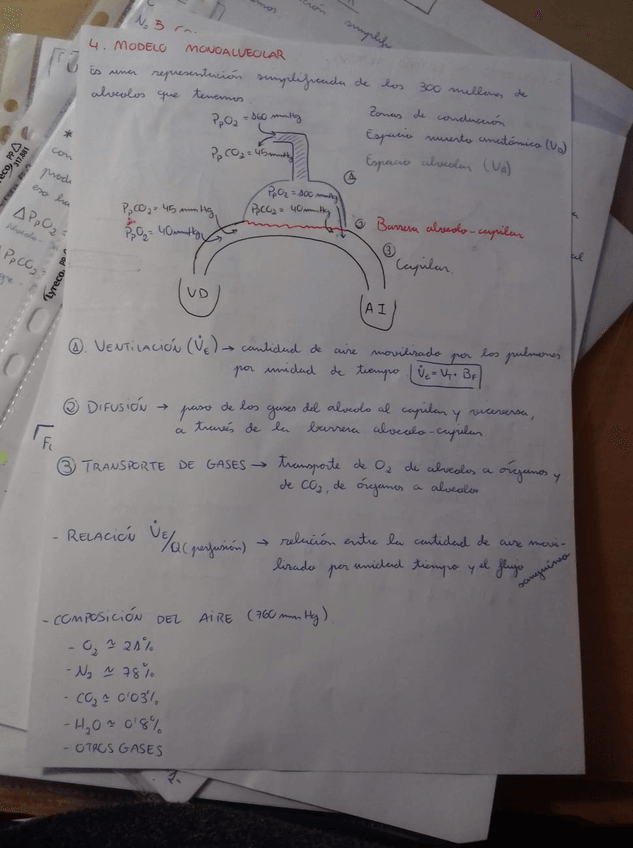 4. MODELO MONOALVEOLAR
Es una representación simplificada de los 300 millones de
alveolos que tenemos.
Zonas de conducción
Espacio muerto anatómico (VD)
Espacio alveolar (VA)
PpO2 = 160 mmHg
PpCO2 = 45 mmHg
①
PpO2 = 100 mmHg
PpCO2 = 40 mmHg
PpCO2 = 45 mmHg
PpO2 = 40 mmHg
② Barrera alveolo-capilar
③
Capilar
VD
AI
①. VENTILACIÓN (V̇E) → cantidad de aire movilizado por los pulmones
por unidad de tiempo V̇E = VT · BF
② DIFUSIÓN → paso de los gases del alveolo al capilar y viceversa,
a través de la barrera alveolo-capilar.
③ TRANSPORTE DE GASES → transporte de O2 de alveolos a órganos y
de CO2, de órganos a alveolos
- RELACIÓN V̇E/Q (perfusión) → relación entre la cantidad de aire movi-
lizado por unidad tiempo y el flujo
sanguíneo
- COMPOSICIÓN DEL AIRE (760 mmHg)
- O2 ≃ 21%
- N2 ≃ 78%
- CO2 ≃ 0'03%
- H2O ≃ 0'8%
- OTROS GASES
Lyreco
317.881
ΔPpO2 =
PpCO2 =
Lyreco